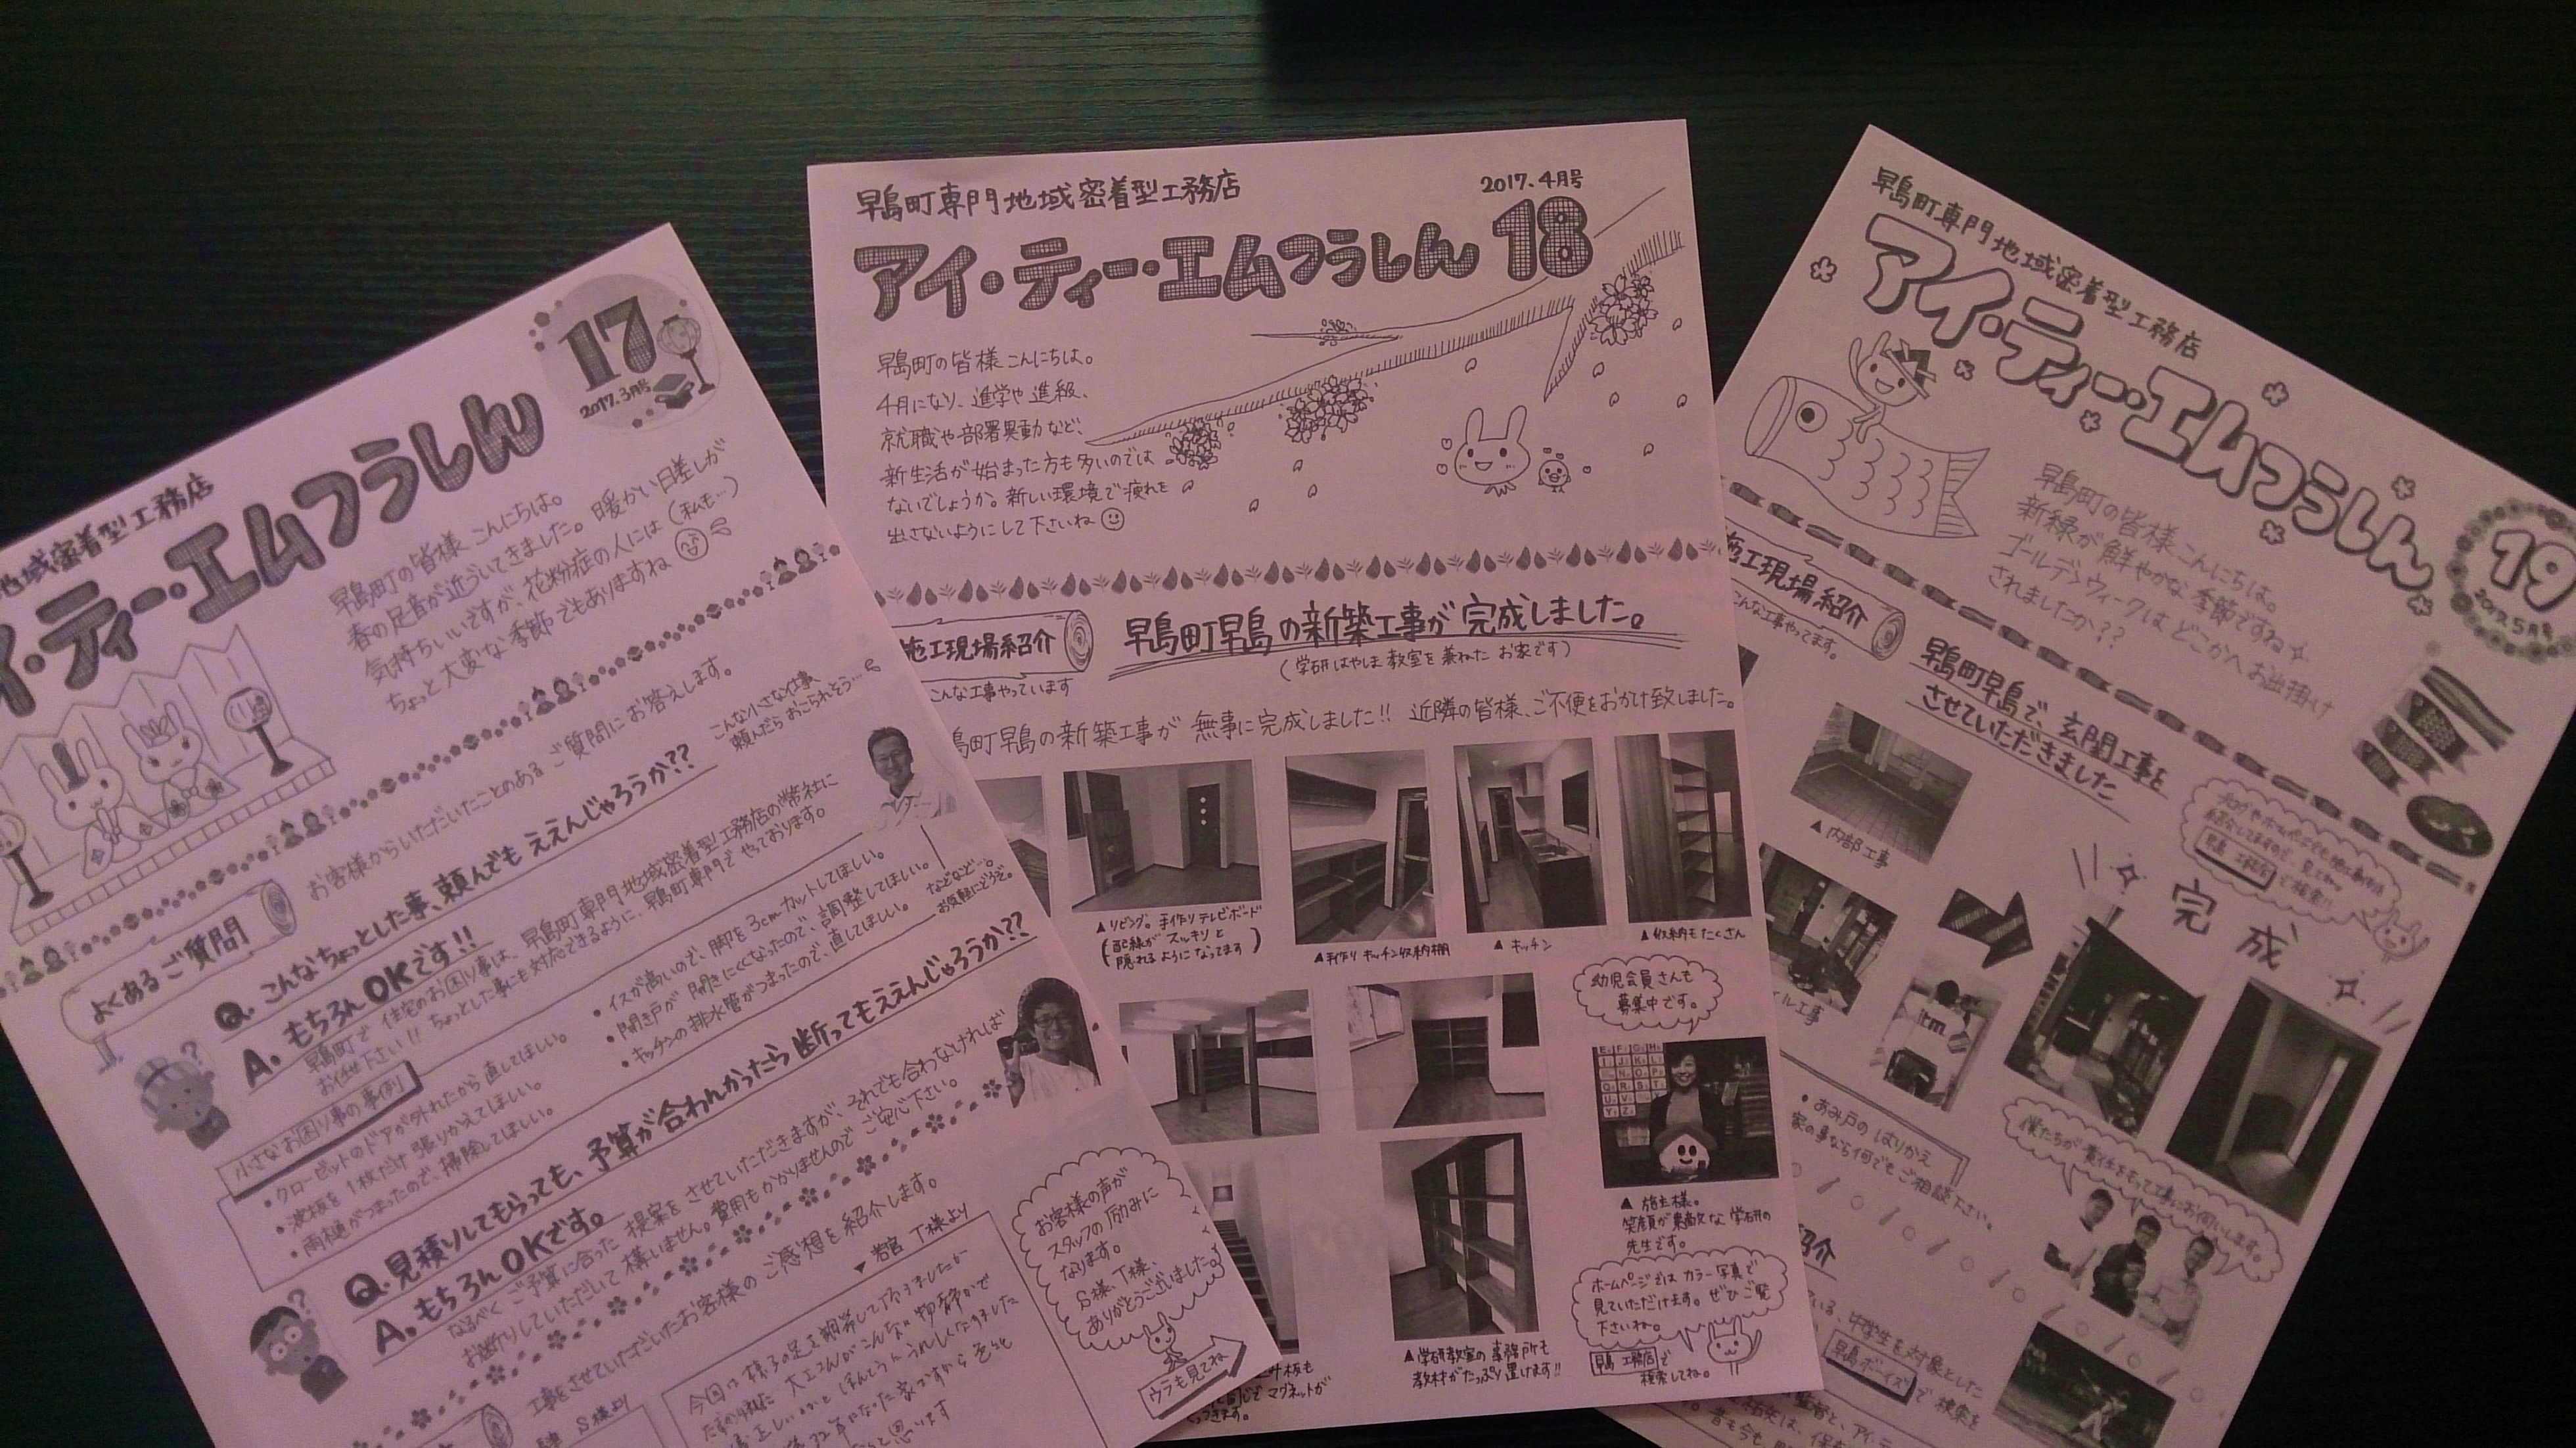 地域密着型工務店
イ・ティー・エムつうしん
17
2017.3月号
早島町の皆様こんにちは。
春の足音が近づいてきました。暖かい日差しが
気持ちいいですが、花粉症の人には(私も…)
ちょっと大変な季節でもありますね
よくあるご質問
お客様からいただいたことのあるご質問にお答えします。
Q.こんなちょっとした事、頼んでもええんじゃろうか??
こんな小さな仕事、
頼んだらおこられそう…
A.もちろんOKです!!
早島町で住宅のお困り事は、早島町専門地域密着型工務店の弊社に
お任せ下さい!!ちょっとした事にも対応できるように、早島町専門でやっております。
小さなお困り事の事例
・クローゼットのドアが外れたから直してほしい。
・波板を1枚だけ張りかえてほしい。
・雨樋がつまったので、掃除してほしい。
・イスが高いので、脚を3cmカットしてほしい。
・開き戸が開きにくくなったので、調整してほしい。
・キッチンの排水管がつまったので、直してほしい。
などなど…。
お気軽にどうぞ。
Q.見積りしてもらっても、予算が合わんかったら断ってもええんじゃろうか??
A.もちろんOKです。
なるべくご予算に合った提案をさせていただきますが、それでも合わなければ
お断りしていただいて構いません。費用もかかりませんのでご安心下さい。
工事をさせていただいたお客様のご感想を紹介します。
S様より
▼若宮 T様より
お客様の声が
スタッフの励みに
なります。
S様、T様、
ありがとうございました。
ウラも見てね
早島町専門地域密着型工務店
2017.4月号
アイ・ティー・エムつうしん 18
早島町の皆様こんにちは。
4月になり、進学や進級、
就職や部署異動など、
新生活が始まった方も多いのでは
ないでしょうか。新しい環境で疲れを
出さないようにして下さいね
施工現場紹介
こんな工事やっています
早島町早島の新築工事が完成しました。
(学研はやしま教室を兼ねたお家です)
島町早島の新築工事が無事に完成しました!!近隣の皆様、ご不便をおかけ致しました。
▲リビング。手作りテレビボード
(配線がスッキリと
隠れるようになってます)
▲手作りキッチン収納棚
▲キッチン
▲収納もたくさん
幼児会員さんも
募集中です。
▲施主様。
笑顔が素敵な学研の
先生です。
ホームページではカラー写真で
見ていただけます。ぜひご覧
下さいね。
早島 工務店で
検索してね。
▲学研教室の事務所も
教材がたっぷり置けます!!
マグネットが
くっつきます。
早島町専門地域密着型工務店
アイ・ティー・エムつうしん
19
2017.5月号
早島町の皆様こんにちは。
新緑が鮮やかな季節ですね
ゴールデンウィークはどこかへお出掛け
されましたか??
施工現場紹介
こんな工事やってます。
早島町早島で、玄関工事を
させていただきました
ブログやホームページでも施工事例を
紹介してますので、見てね。
早島 工務店で検索!!
▲内部工事
イル工事
完成
itm
僕たちが責任をもって工事にお伺いします。
・あみ戸のはりかえ
家の事なら何でもご相談下さい。
紹介
ている、中学生を対象とした
早島ボーイズで検索を